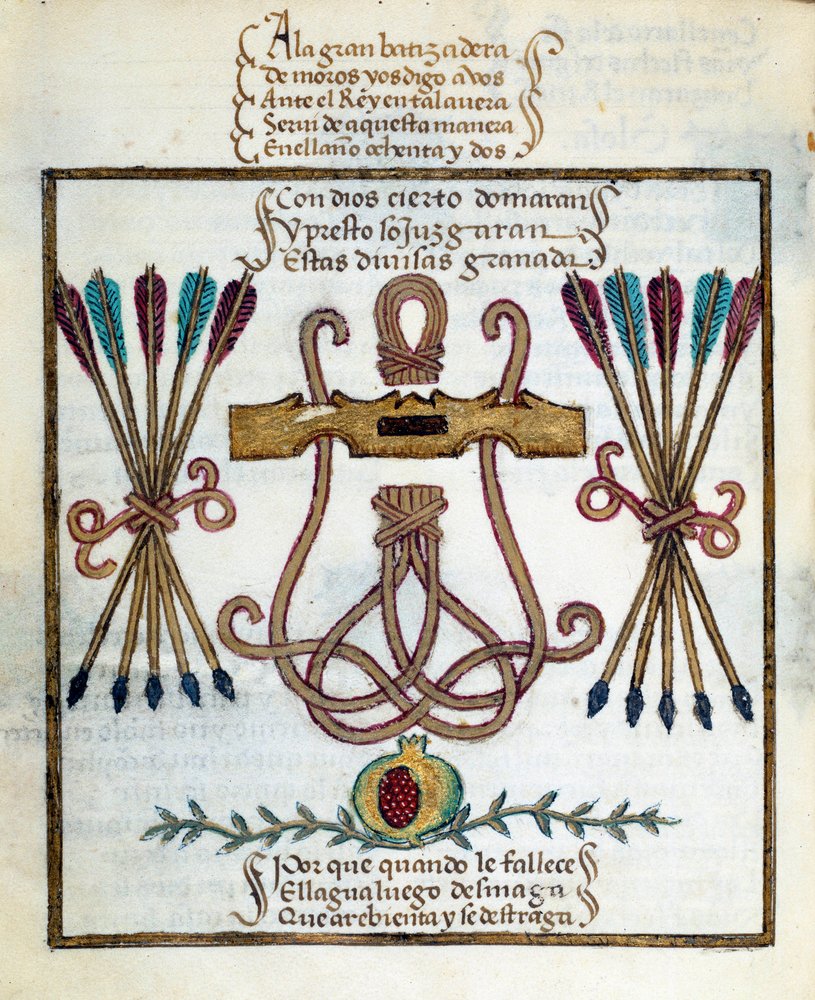 A la gran batizadera
de moros yos digo avos
Ante el Rey en talavera
Servi de aquesta manera
En el año ochenta y dos
Con dios cierto domaran
Y presto sojuzgaran
Estas divisas granada
Por que quando le fallece
El lagua luego desmaga
Que arebienta y se destraga